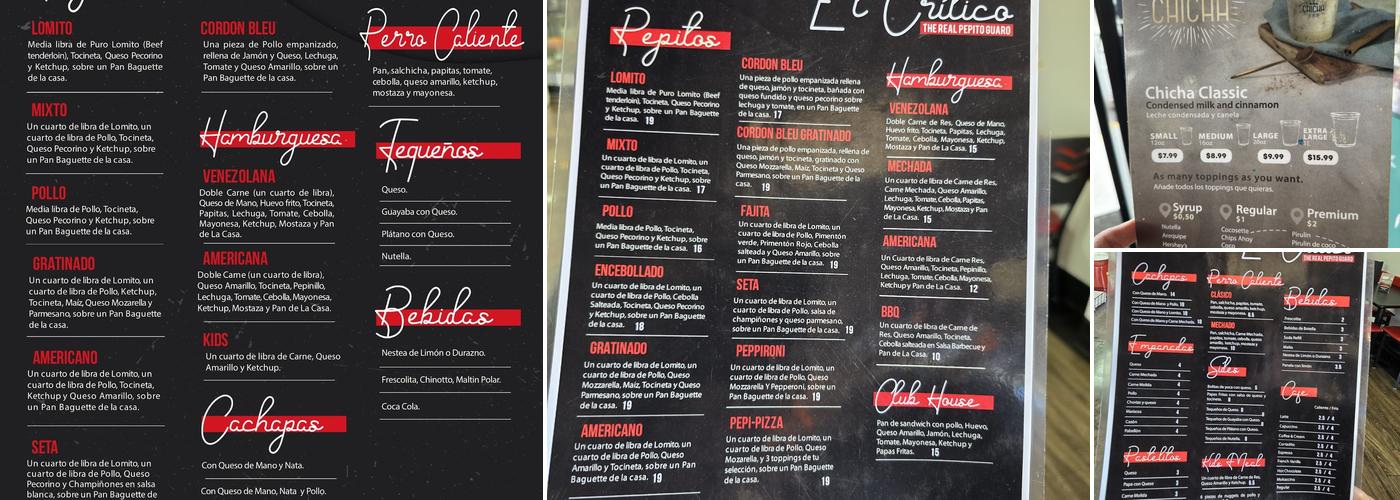 LOMITO
Media libra de Puro Lomito (Beef
tenderloin), Tocineta, Queso Pecorino
y Ketchup, sobre un Pan Baguette
de la casa.
MIXTO
Un cuarto de libra de Lomito, un
cuarto de libra de Pollo, Tocineta,
Queso Pecorino y Ketchup, sobre
un Pan Baguette de la casa.
POLLO
Media libra de Pollo, Tocineta,
Queso Pecorino y Ketchup, sobre
un Pan Baguette de la casa.
GRATINADO
Un cuarto de libra de Lomito, un
cuarto de libra de Pollo, Ketchup,
Tocineta, Maíz, Queso Mozarella y
Parmesano, sobre un Pan Baguette
de la casa.
AMERICANO
Un cuarto de libra de Lomito, un
cuarto de libra de Pollo, Tocineta,
y Ketchup, Queso Amarillo, sobre
un Pan Baguette de la casa.
SETA
Un cuarto de libra de Lomito, un
cuarto de libra de Pollo, Queso
Pecorino y Champiñones en salsa
blanca, sobre un Pan Baguette de
CORDON BLEU
Una pieza de Pollo empanizado,
rellena de Jamón y Queso, Lechuga,
Tomate y Queso Amarillo, sobre un
Pan Baguette de la casa.
Hamburguesa
VENEZOLANA
Doble Carne (un cuarto de libra),
Queso de Mano, Huevo frito, Tocineta,
Papitas, Lechuga, Tomate, Cebolla,
Mayonesa, Ketchup, Mostaza y Pan
de La Casa.
AMERICANA
Doble Carne (un cuarto de libra),
Queso Amarillo, Tocineta, Pepinillo,
Lechuga, Tomate, Cebolla, Mayonesa,
Ketchup, Mostaza y Pan de La Casa.
KIDS
Un cuarto de libra de Carne, Queso
Amarillo y Ketchup.
Cachapas
Con Queso de Mano y Nata.
Con Queso de Mano, Nata y Pollo.
Perro Caliente
Pan, salchicha, papitas, tomate,
cebolla, queso amarillo, ketchup,
mostaza y mayonesa.
Tequeños
Queso.
Guayaba con Queso.
Plátano con Queso.
Nutella.
Bebidas
Nestea de Limón o Durazno.
Frescolita, Chinotto, Maltin Polar.
Coca Cola.
El Crítico
THE REAL PEPITO GUARO
Pepitos
LOMITO
Media libra de Puro Lomito (Beef
tenderloin), Tocineta, Queso Pecorino
y Ketchup, sobre un Pan Baguette
de la casa. 19
MIXTO
Un cuarto de libra de Lomito, un
cuarto de libra de Pollo, Tocineta,
Queso Pecorino y Ketchup, sobre
un Pan Baguette de la casa. 17
POLLO
Media libra de Pollo, Tocineta,
Queso Pecorino y Ketchup, sobre
un Pan Baguette de la casa. 16
ENCEBOLLADO
Un cuarto de libra de Lomito, un
cuarto de libra de Pollo, Cebolla
Salteada, Tocineta, Queso Pecorino
y Ketchup, sobre un Pan Baguette
de la casa. 18
GRATINADO
Un cuarto de libra de Lomito, un
cuarto de libra de Pollo, Queso
Mozzarella, Maíz, Tocineta y Queso
Parmesano y Ketchup, sobre un
Pan Baguette de la casa. 19
AMERICANO
Un cuarto de libra de Lomito, un
cuarto de libra de Pollo, Queso
Amarillo y Tocineta, sobre un Pan
Baguette de la casa. 19
CORDON BLEU
Una pieza de pollo empanizada rellena
de queso, jamón y tocineta, bañada con
queso fundido y queso pecorino sobre
lechuga y tomate, en un Pan Baguette
de la casa. 17
CORDON BLEU GRATINADO
Una pieza de pollo empanizada, rellena de
queso, jamón y tocineta, gratinado con
Queso Mozzarella, Maíz, Tocineta y Queso
Parmesano, sobre un Pan Baguette de la
casa. 19
FAJITA
Un cuarto de libra de Lomito, un
cuarto de libra de Pollo, Pimentón
verde, Primentón Rojo, Cebolla
salteada y Queso Amarillo, sobre
un Pan Baguette de la casa. 19
SETA
Un cuarto de libra de Lomito, un
cuarto de libra de Pollo, salsa de
champiñones y queso parmesano,
sobre un Pan Baguette de la casa. 19
PEPPIRONI
Un cuarto de libra de Lomito, un
cuarto de libra de Pollo, Queso
Mozzarella Y Pepperoni, sobre un
Pan Baguette de la casa. 19
PEPI-PIZZA
Un cuarto de libra de Lomito, un
cuarto de libra de Pollo, Queso
Mozarella, y 3 toppings de tu
selección, sobre un Pan Baguette
de la casa. 19
Hamburguesa
VENEZOLANA
Doble Carne de Res, Queso de Mano,
Huevo frito, Tocineta, Papitas, Lechuga,
Tomate, Cebolla, Mayonesa, Ketchup,
Mostaza y Pan de La Casa. 15
MECHADA
Un cuarto de libra de Carne de Res,
Carne Mechada, Queso Amarillo,
Tomate, Lechuga, Cebolla, Papitas,
Mayonesa, Ketchup, Mostaza y Pan
de La Casa. 15
AMERICANA
Un Cuarto de Libra de Carne Res,
Queso Amarillo, Tocineta, Pepinillo,
Lechuga, Tomate, Cebolla, Mayonesa,
Ketchup, Mostaza y Pan de La Casa. 12
BBQ
Un cuarto de libra de Carne de
Res, Queso Amarillo, Tocineta,
Cebolla salteada en Salsa Barbecue y
Pan de La Casa. 10
Club House
Pan de sandwich con pollo, Huevo,
Queso Amarillo, Jamón, Lechuga,
Tomate, Mayonesa, Ketchup y
Papas Fritas. 15
CHICHA
Chicha Classic
Condensed milk and cinnamon
Leche condensada y canela
SMALL
12oz
$7.99
MEDIUM
16oz
$8.99
LARGE
20oz
$9.99
EXTRA
LARGE
$15.99
As many toppings as you want.
Añade todos los toppings que quieras.
Syrup
$0,50
Nutella
Arequipe
Hershey's
Regular
$1
Cocosette
Chips Ahoy
Coco
Premium
$2
Pirulin
Pirulin de coco
THE REAL PEPITO GUARO
Cachapas
Con Queso de Mano. 14
Con Queso de Mano y Pollo. 18
Con Queso de Mano y Lomito. 18
Con Queso de Mano y Carne Mechada. 18
Empanadas
Queso 4
Carne Mechada 4
Carne Molida 4
Pollo 4
Chorizo y queso 4
Mariscos 4
Cazón 4
Pabellón 4
Pastelitos
Queso 3
Papa con Queso 3
Carne Molida 3
Perro Caliente
CLÁSICO
Pan, salchicha, papitas, tomate,
cebolla, queso amarillo, ketchup,
mostaza y mayonesa. 6.5
MECHADO
Pan, salchicha, Carne Mechada,
papitas, tomate, cebolla, queso
amarillo, ketchup, mostaza y
mayonesa. 10
Sides
Tequeños de Queso. 8
Tequeños de Guayaba con Queso.
Tequeños de Plátano con Queso.
Tequeños de Nutella. 8
Kids Meal
Un cuarto de libra de Carne, Queso
Amarillo y Ketchup. 8.5
Bebidas
Frescolita 2
Bebidas de Botella 3
Soda Refill 3
Malta 3
Nestea de Limón o Durazno 3
Panela con limón 3.5
Cafe
Caliente / Frío
Latte 2.5 / 4
Capuccino 2.5 / 4
Coffee & Cream 2.5 / 4
Cortadito 2.5 / 4
Espresso 2.5 / 4
French Vanilla 2.5 / 4
Hot Chocolate 2.5 / 4
Mokaccino 2.5 / 4
Regular 2.5 / 4